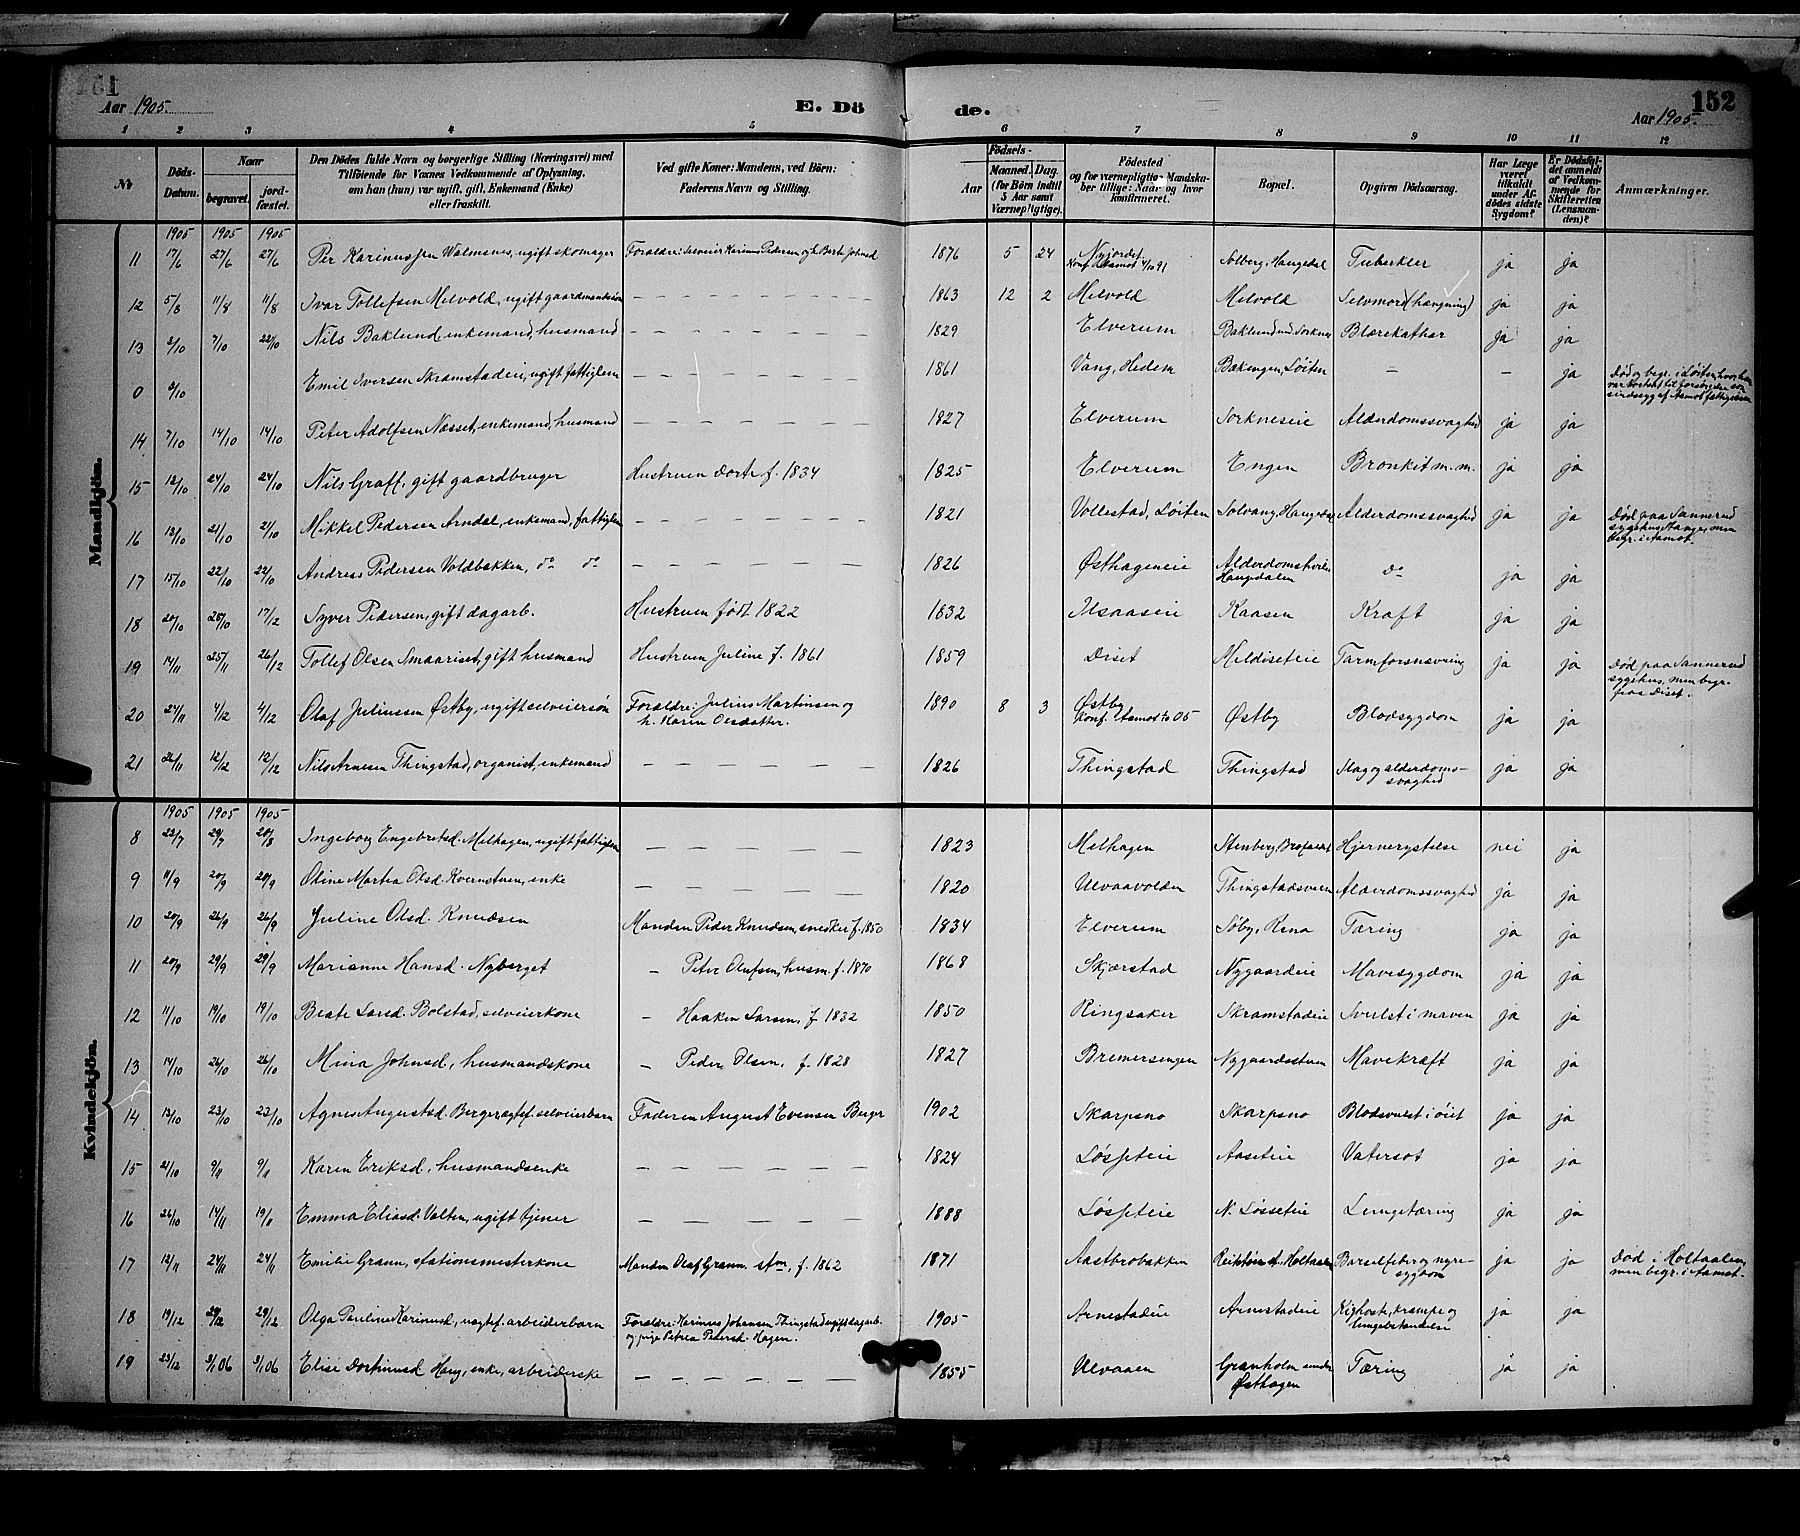 161
Aar 1905.
E. Dö
de.
152
Aar 1905.
1 2 3 4 5 6 7 8 9 10 11 12
No
Döds-Datum.
Naar
begravet.
jord-fæstet.
Den Dödes fulde Navn og borgerlige Stilling (Næringsvei) med
Tilföiende for Voxnes Vedkommende af Oplysning,
om han (hun) var ugift, gift, Enkemand (Enke)
eller fraskilt.
Ved gifte Koner: Mandens, ved Börn:
Faderens Navn og Stilling.
Födsels-
Aar
Maaned. Dag.
(for Börn indtil
5 Aar samt
Værnepligtige).
Födested
og for værnepligtige Mandska-
ber tillige: Naar og hvor
konfirmeret.
Bopæl.
Opgiven Dödsaarsag.
Har Læge
været
tilkaldt
under Af-
dödes sidste
Sygdom?
Er Dödsfal-
det anmeldt
af Vedkom-
mende for
Skifteretten
(Lensman-
den)?
Anmærkninger.
Mandkjön.
1905 1905 1905
11 17/6 27/6 27/6 Per Karinussen Valmsnes, ugift skomager Forældre: Selveier Karinus Pedersen og h. Berte Johnsd 1876 5 24 Nyjordet Konf. i Aamot 4/10 91 Solberg, Haugedal Tuberkler ja ja
12 5/8 11/8 11/8 Ivar Tollefsen Melvold, ugift gaardmandssøn — — — — — — 1863 12 2 Melvold Melvold Selvmord (hængning) ja ja
13 2/10 7/10 22/10 Nils Baklund enkemand, husmand — — — — — — 1829 Elverum Baklund nd. Sorknes Blærekathar ja ja
0 3/10 Emil Iversen Skramstadeie, ugift fattiglem — — — — — — 1861 Vang, Hedem Bækengen, Löiten — — ja Död og begr. i Löiten, hvor han var bortsat til forsörgelse som sindssyg af Aamot fattigvæsen
14 7/10 14/10 14/10 Peter Adolfsen Næsset, enkemand, husmand — — — — — — 1827 Elverum Sorkneseie Alderdomssvaghed ja ja
15 12/10 24/10 24/10 Nils Graff, gift gaardbruger Hustruen Dorte f. 1834 1825 Elverum Engen Bronkit m. m. ja ja
16 13/10 21/10 21/10 Mikkel Pedersen Arndal, enkemand, fattiglem — — — — — — 1821 Vollestad, Löiten Solvang, Haugedal Alderdomssvaghed ja ja Död paa Sannerud sygehus Stange, men begr. i Aamot.
17 15/10 22/10 22/10 Andreas Pedersen Voldbakken, do do — — — — — — 1826 Østhageneie Alderdomshvilen Haugdalen do ja ja
18 20/10 25/10 17/12 Syver Pedersen, gift dagarb. Hustruen født 1822 1832 Ilsaaseie Kaasen Kræft ja ja
19 14/11 25/11 26/12 Tollef Olsen Smaariset, gift husmand Hustruen Juline f. 1861 1859 Diset Meldiseteie Tarmforsnevring ja ja Död paa Sannerud sygehus, men begr. paa Diset.
20 24/11 4/12 4/12 Olaf Juliussen Østby, ugift selveiersøn Forældre: Julius Martinsen og h. Karen Olsdatter. 1890 8 3 Østby Konf. i Aamot 05 Østby Blodsygdom ja ja
21 26/11 12/12 12/12 Nils Arnesen Thingstad, organist, enkemand — — — — — — 1826 Thingstad Thingstad Slag og alderdoms-svaghed ja ja
Kvindekjön.
1905 1905 1905
8 23/7 29/7 20/8 Ingeborg Engebretsd. Melhagen, ugift fattiglem — — — — — 1823 Melhagen Stenberg, Hjernerystelse nei ja
9 11/9 20/9 20/9 Oline Martea Olsd. Kvernstuen, enke — — — — — 1820 Ulvaavolden Thingstadsveen Alderdomssvaghed ja ja
10 20/9 26/9 26/9 Juline Olsd. Knudsen Manden Peder Knudsen, snedker f. 1850 1834 Elverum Søby, Rena Tæring ja ja
11 20/9 29/9 29/9 Marianne Hansd. Nyberget — Peter Olufsen, husm. f. 1870 1868 Skjærstad Nygaardeie Mavesygdom ja ja
12 11/10 19/10 19/10 Beate Larsd. Bolstad, selveierkone — Haaken Larsen, f. 1832 1850 Ringsaker Skramstadeie Svulst i maven ja ja
13 14/10 26/10 26/10 Mina Johnsd, husmandskone — Peder Olsen, f. 1828 1827 Bremersengen Nygaardsstuen Mavekræft ja ja
14 13/10 23/10 23/10 Agnes Augustsd. Berger, ægtef. selveierbarn Faderen August Evensen Berger 1902 Skarpsno Skarpsno Blodsvulst i öiet ja ja
15 21/10 9/11 9/11 Karen Eriksd, husmandsenke — — — — — 1824 Løsseteie Aaseteie Vatersot ja ja
16 26/10 14/11 19/11 Emma Eliasd. Volten, ugift tjener — — — — — 1888 Løsseteie N. Løsseteie Lungetæring ja ja
17 12/11 24/11 24/11 Emilie Grann, stationsmesterkone Manden Olaf Grann, stm, f. 1862 1871 Aastbrobakken Holtaalen Barselfeber og nyre-sygdom ja ja Död i Holtaalen, men begr. i Aamot.
18 19/12 29/12 29/12 Olga Pauline Karinusd, uægtef. arbeiderbarn Forældre: Karinus Johansen Thingstad ugift dagarb. og pige Petrea Pedersd. Hagen. 1905 Arnestadeie Arnestadeie Kighoste, krampe og lungebetændelse ja ja
19 23/12 3/1 06 3/1 06 Elise Dortinusd Haug, enke, arbeiderske — — — — — 1855 Ulvaaen Granholm under Østhagen Tæring ja ja